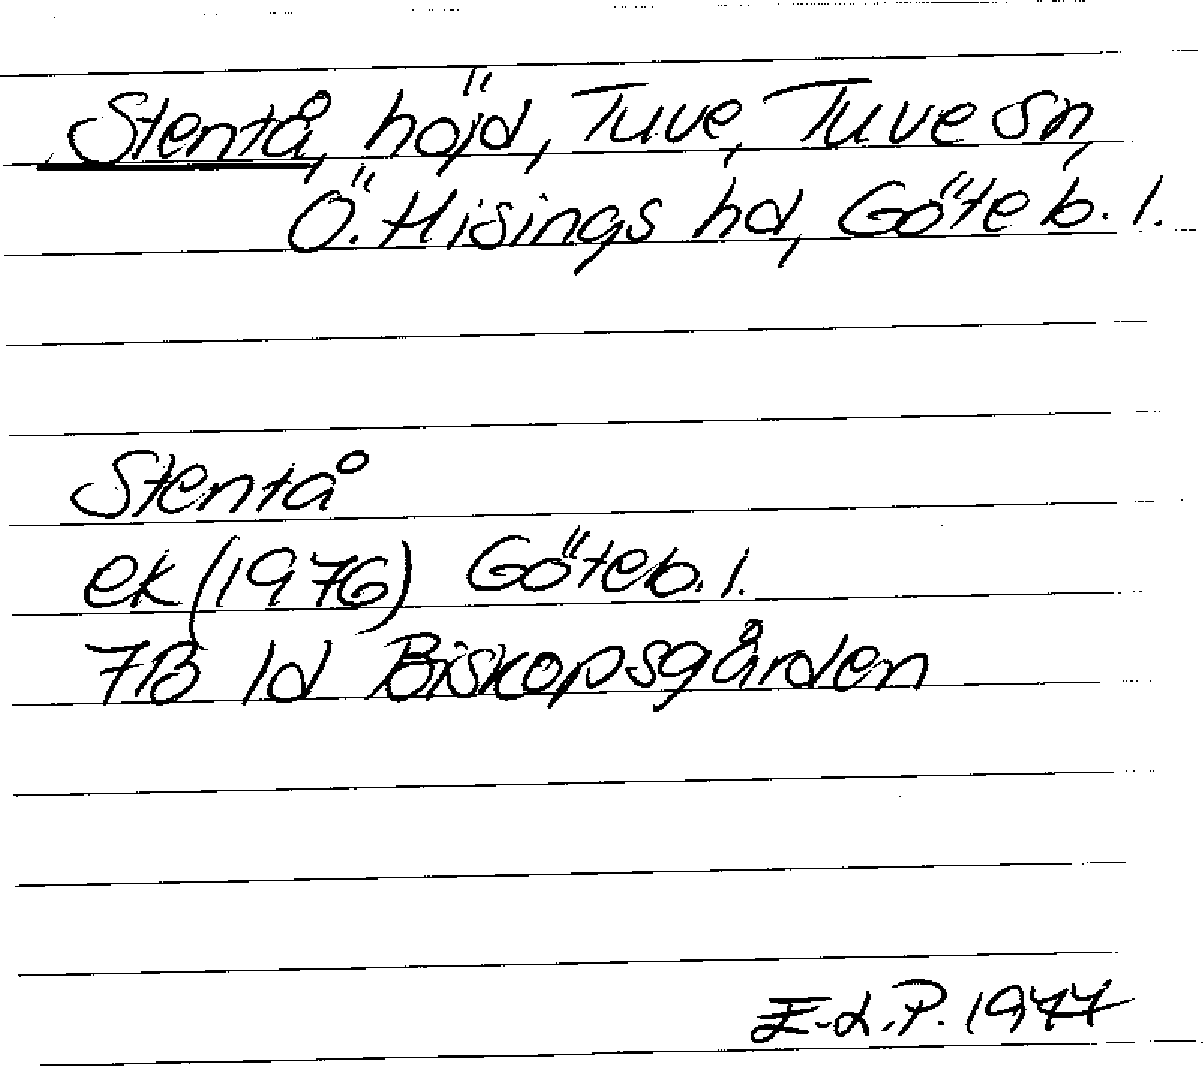 Stentå, höjd, Tuve, Tuve sn,
Ö. Hisings hd, Göteb. l.
Stentå
ek (1976) Göteb. l.
7B 1d Biskopsgården
E-L.P. 1977